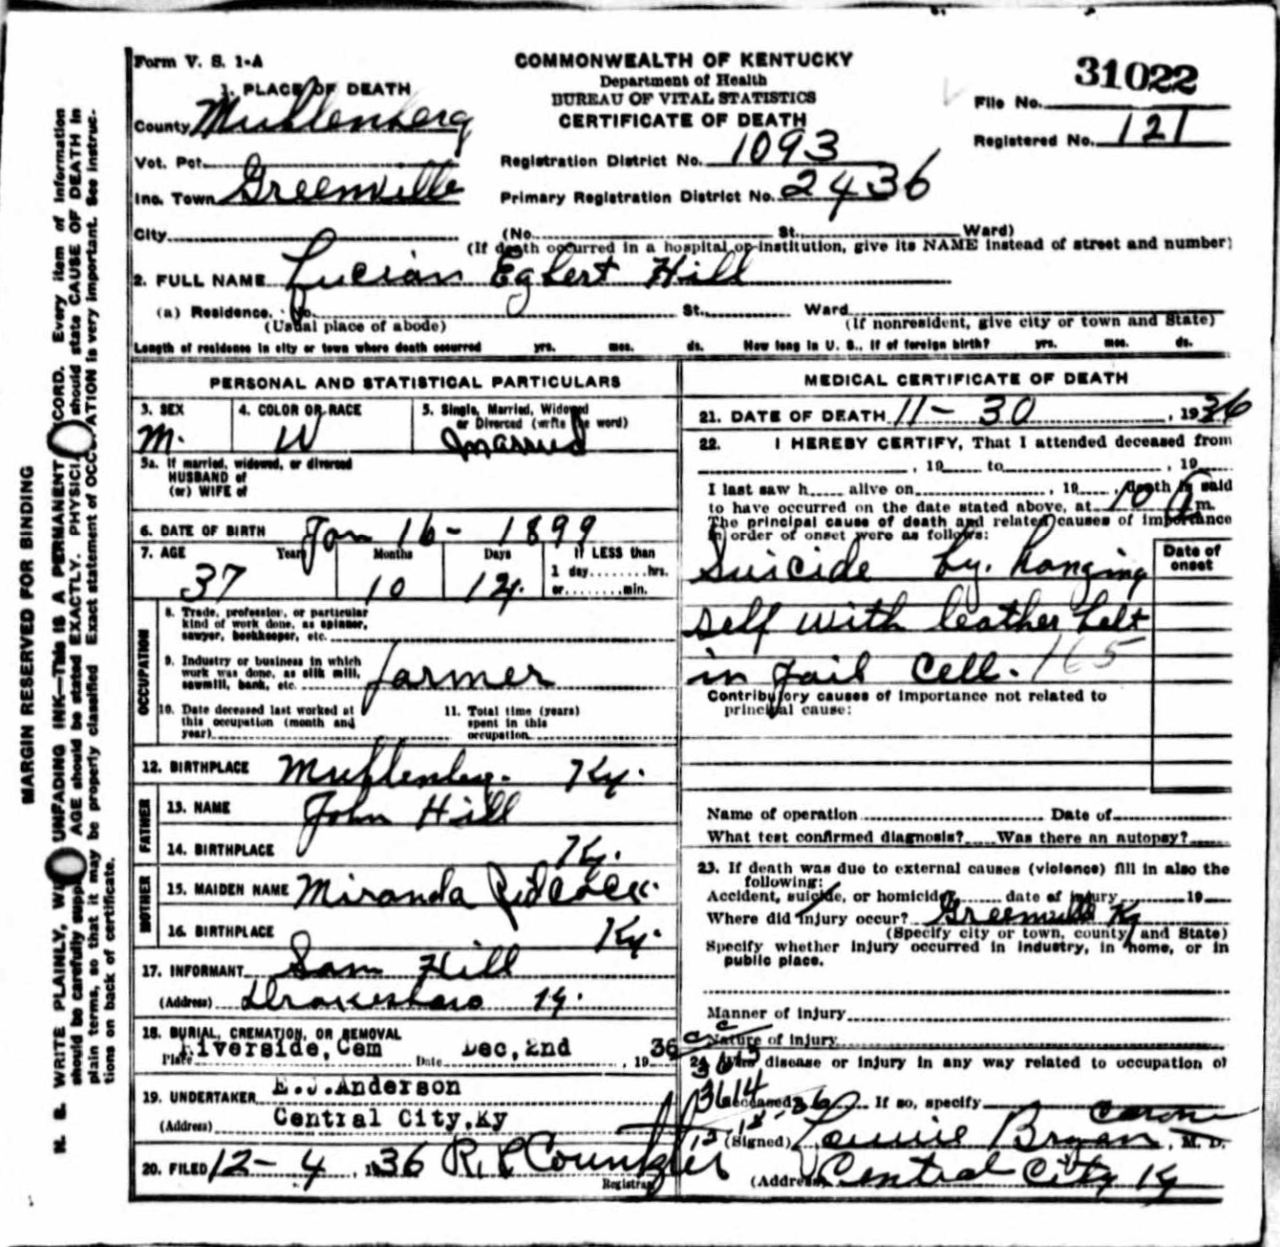 Form V. S. 1-A
COMMONWEALTH OF KENTUCKY
Department of Health
BUREAU OF VITAL STATISTICS
CERTIFICATE OF DEATH
31022
File No.
Registered No. 121
1. PLACE OF DEATH
County Muhlenberg
Vot. Pct.
Inc. Town Greenville
Registration District No. 1093
Primary Registration District No. 2436
City (No. St. Ward)
(If death occurred in a hospital or institution, give its NAME instead of street and number)
2. FULL NAME Lucian Egbert Hill
(a) Residence. No. St. Ward
(Usual place of abode) (If nonresident, give city or town and State)
Length of residence in city or town where death occurred yrs. mos. ds. How long in U. S., if of foreign birth? yrs. mos. ds.
PERSONAL AND STATISTICAL PARTICULARS
3. SEX 4. COLOR OR RACE 5. Single, Married, Widowed
or Divorced (write the word)
M. W Married
5a. If married, widowed, or divorced
HUSBAND of
(or) WIFE of
6. DATE OF BIRTH Jan 16 - 1899
7. AGE Years Months Days If LESS than
1 day........hrs.
or........min.
37 10 14
OCCUPATION
8. Trade, profession, or particular
kind of work done, as spinner,
sawyer, bookkeeper, etc.
9. Industry or business in which
work was done, as silk mill,
sawmill, bank, etc. farmer
10. Date deceased last worked at
this occupation (month and
year)
11. Total time (years)
spent in this
occupation
12. BIRTHPLACE Muhlenberg. Ky.
FATHER
13. NAME John Hill
14. BIRTHPLACE Ky.
MOTHER
15. MAIDEN NAME Miranda
16. BIRTHPLACE Ky.
17. INFORMANT Sam Hill
(Address) Drakesboro Ky.
18. BURIAL, CREMATION, OR REMOVAL
Place Riverside, Cem Date Dec, 2nd, 1936
19. UNDERTAKER E.J.Anderson
(Address) Central City, Ky
20. FILED 12-4, 1936
Registrar
MEDICAL CERTIFICATE OF DEATH
21. DATE OF DEATH 11-30, 1936
22. I HEREBY CERTIFY, That I attended deceased from
, 19 to , 19
I last saw h alive on , 19 , death is said
to have occurred on the date stated above, at 10 m.
The principal cause of death and related causes of importance
in order of onset were as follows:
Date of
onset
Suicide by. hanging
self with leather belt
in jail cell. 165
Contributory causes of importance not related to
principal cause:
Name of operation Date of
What test confirmed diagnosis? Was there an autopsy?
23. If death was due to external causes (violence) fill in also the
following:
Accident, suicide, or homicide date of injury 19
Where did injury occur? Greenville Ky
(Specify city or town, county, and State)
Specify whether injury occurred in industry, in home, or in
public place.
Manner of injury
Nature of injury
24. Was disease or injury in any way related to occupation of
deceased? If so, specify
3614
(Signed) Bryan Coroner, M. D.
(Address) Central City Ky
MARGIN RESERVED FOR BINDING
N. B. WRITE PLAINLY, WITH UNFADING INK—THIS IS A PERMANENT RECORD. Every item of information
should be carefully supplied. AGE should be stated EXACTLY. PHYSICIANS should state CAUSE OF DEATH in
plain terms, so that it may be properly classified. Exact statement of OCCUPATION is very important. See instruc-
tions on back of certificate.